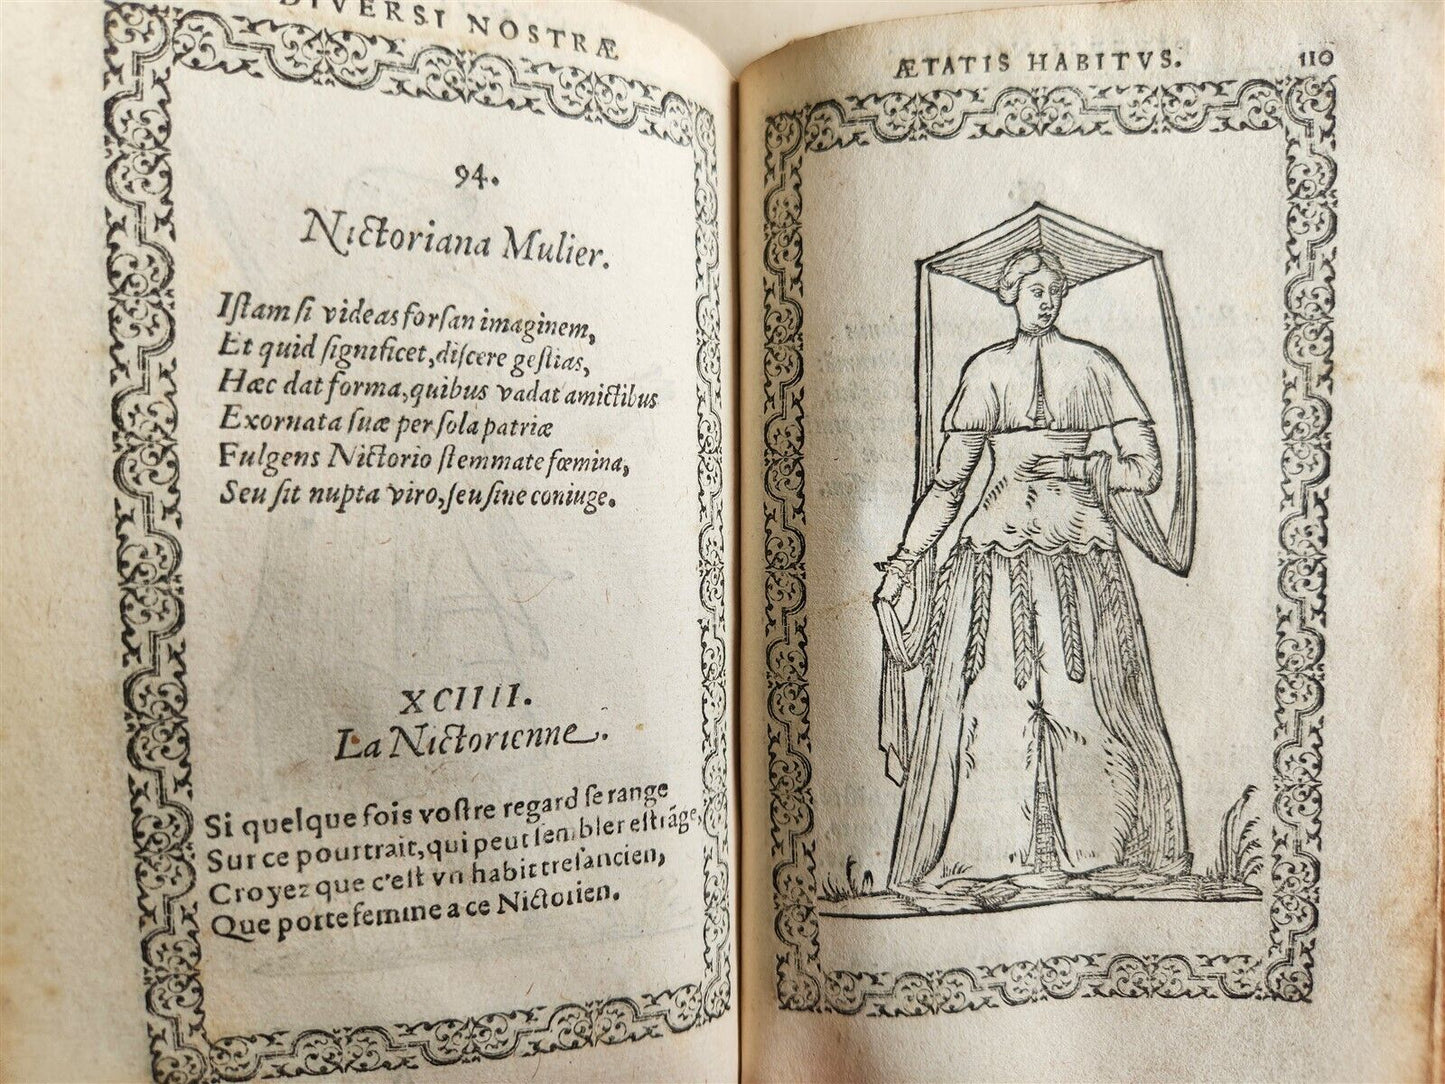 DIVERSI NOSTRÆ
94.
Nictoriana Mulier.
Iſtam ſi videas forſan imaginem,
Et quid ſignificet, diſcere geſtias,
Hæc dat forma, quibus vadat amictibus
Exornata ſuæ per ſola patriæ
Fulgens Nictorio ſtemmate fœmina,
Seu ſit nupta viro, ſeu ſine coniuge.
XCIIII.
La Nictorienne.
Si quelque fois voſtre regard ſe range
Sur ce pourtrait, qui peut ſembler eſtrãge,
Croyez que c'eſt vn habit treſancien,
Que porte femme a ce Nictorien.
ÆTATIS HABITVS. 110